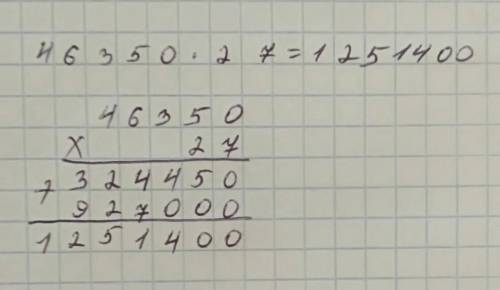 46350 · 27 = 1251400
46350
x 27
+ 324450
927000
1251400